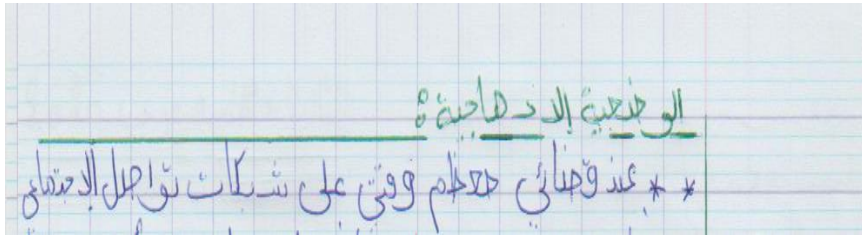 الوضعية الإدماجية :
** عند قضائي معظم وقتي على شبكات تواصل الاجتماعي